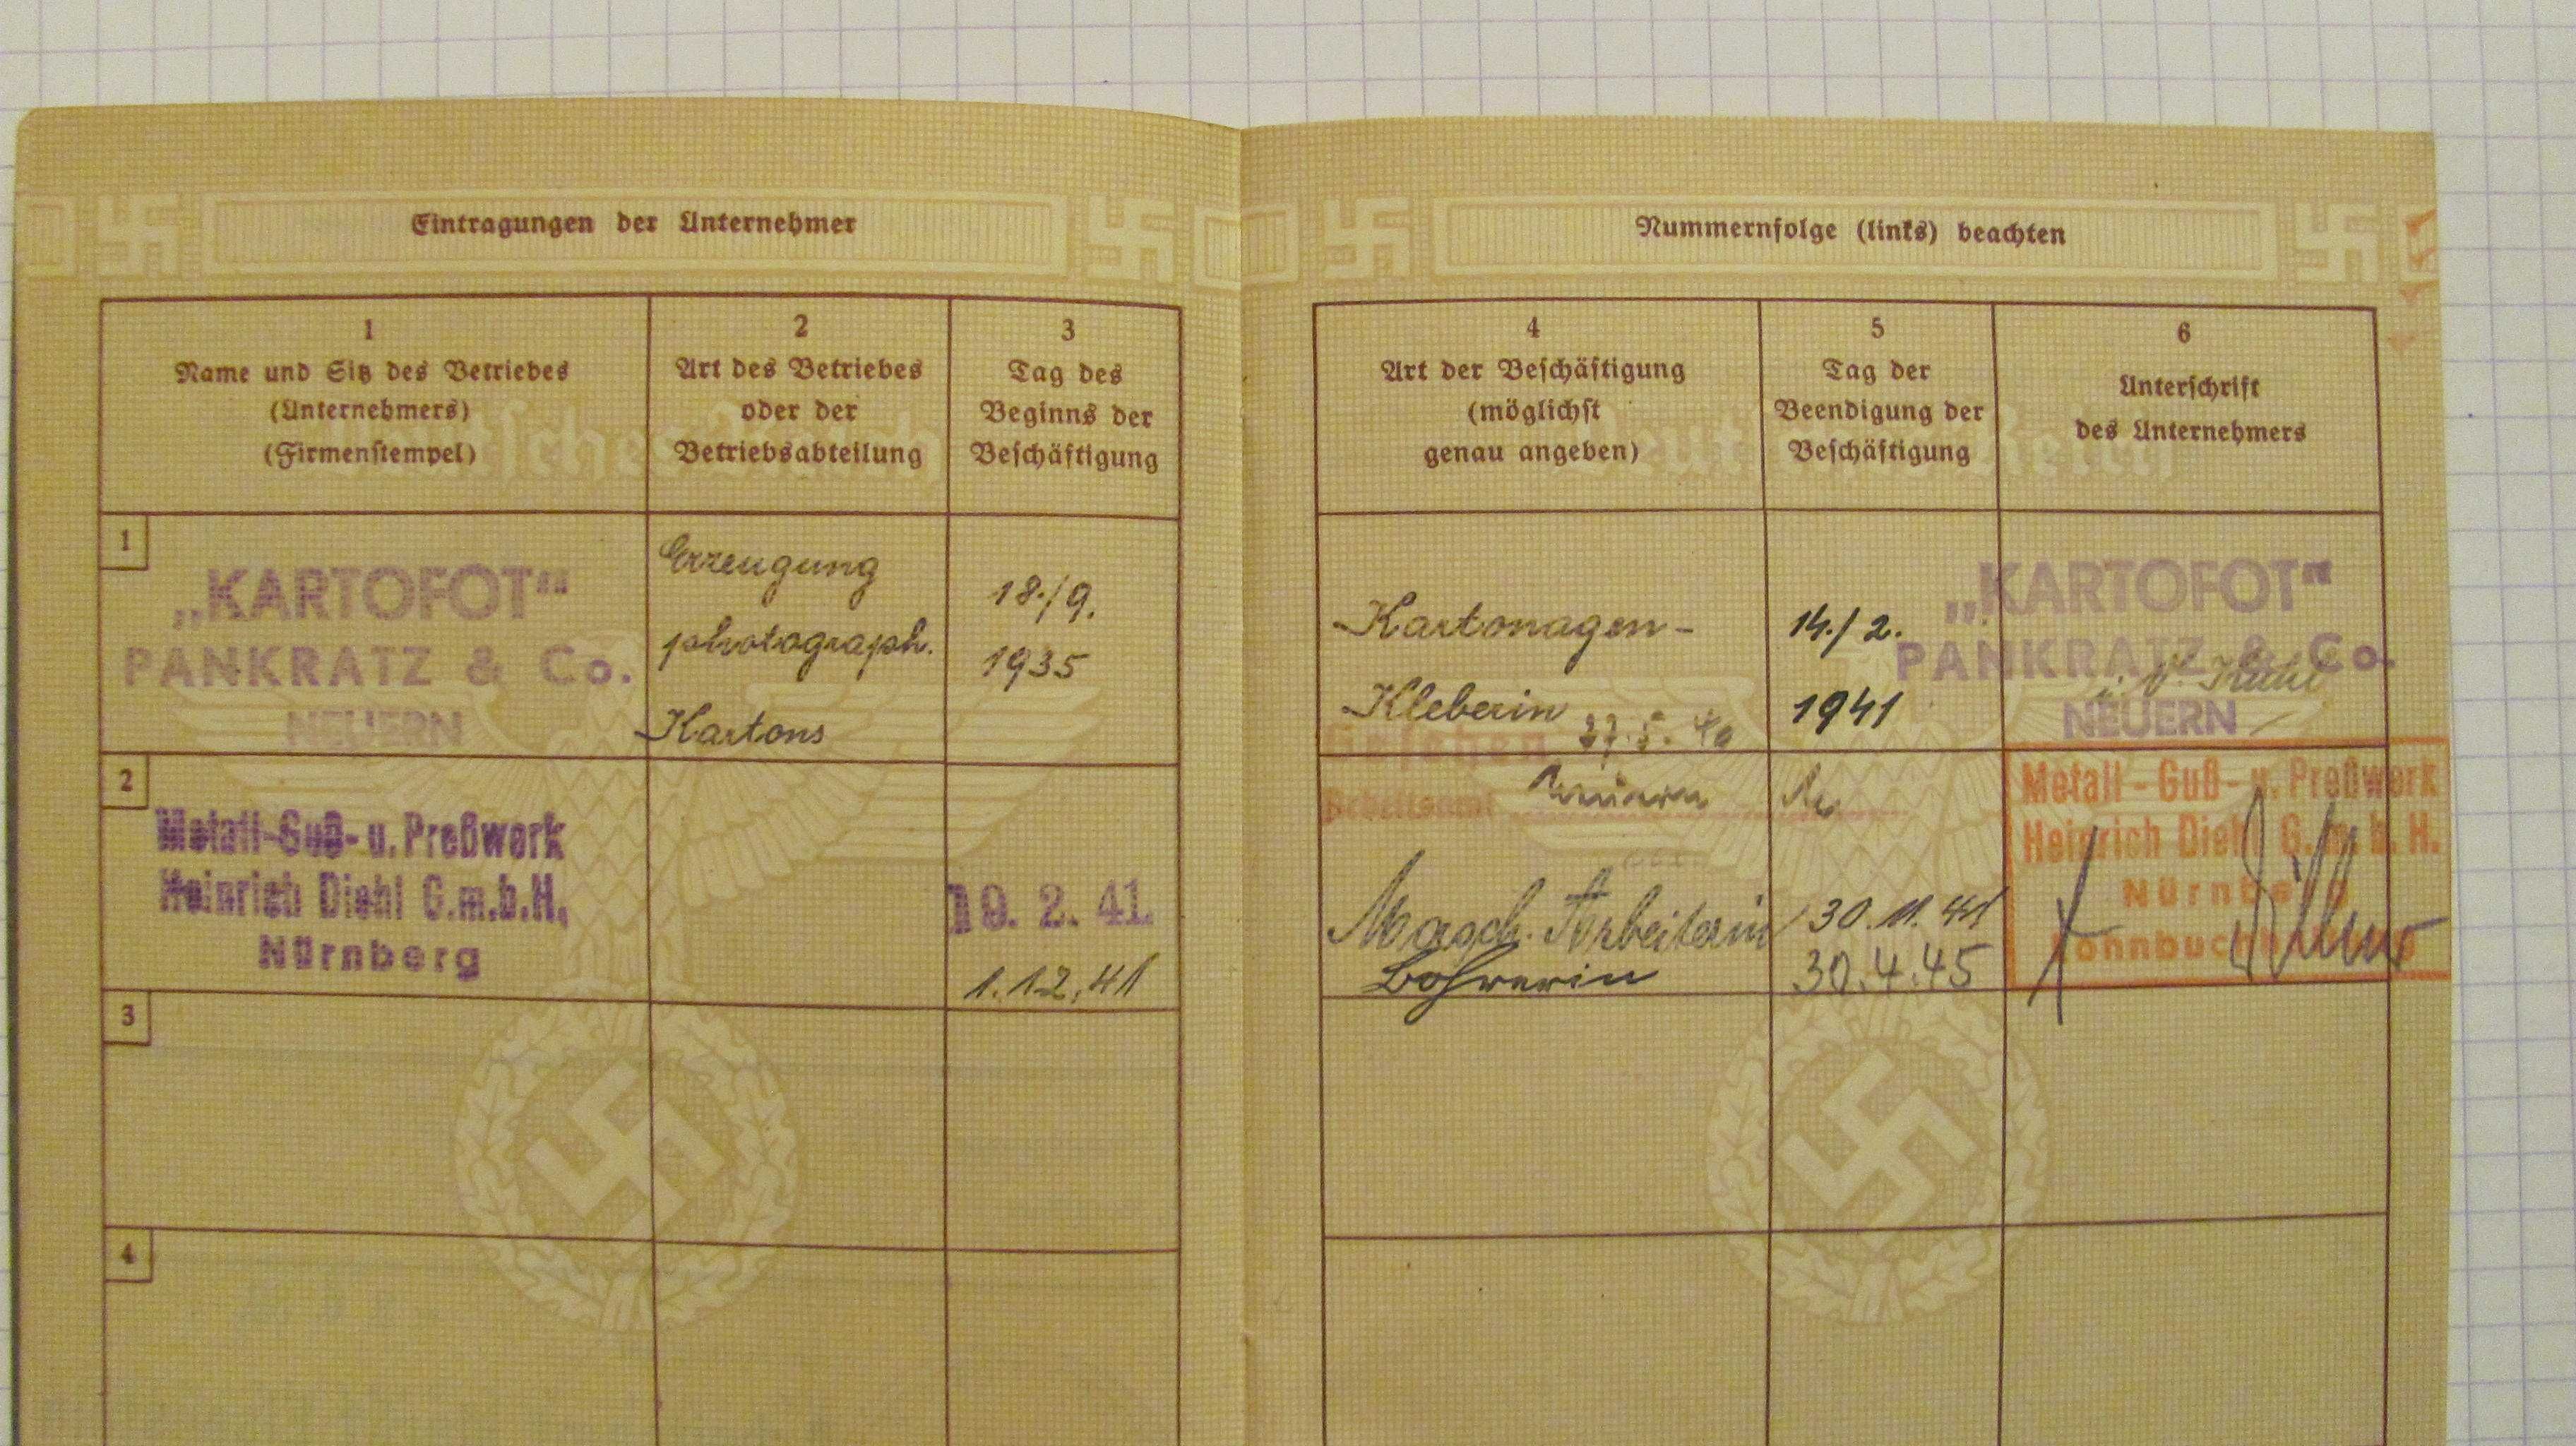 Eintragungen der Unternehmer
1
Name und Sitz des Betriebes
(Unternehmers)
(Firmenstempel)
2
Art des Betriebes
oder der
Betriebsabteilung
3
Tag des
Beginns der
Beschäftigung
1
„KARTOFOT"
PANKRATZ & Co.
NEUERN
Erzeugung
photograph.
Kartons
18./9.
1935
2
Metall-Guß- u. Preßwerk
Heinrich Diehl G.m.b.H.,
Nürnberg
19. 2. 41.
1.12.41
3
4
Nummernfolge (links) beachten
4
Art der Beschäftigung
(möglichst
genau angeben)
5
Tag der
Beendigung der
Beschäftigung
6
Unterschrift
des Unternehmers
Kartonagen-
Kleberin
14./2.
1941
„KARTOFOT"
PANKRATZ & Co.
i. V.
NEUERN
Gesehen 27.5.40
Arbeitsamt
Masch. Arbeiterin
Bohrerin
30.11.41
30.4.45
Metall-Guß- u. Preßwerk
Heinrich Diehl G.m.b.H.
Nürnberg